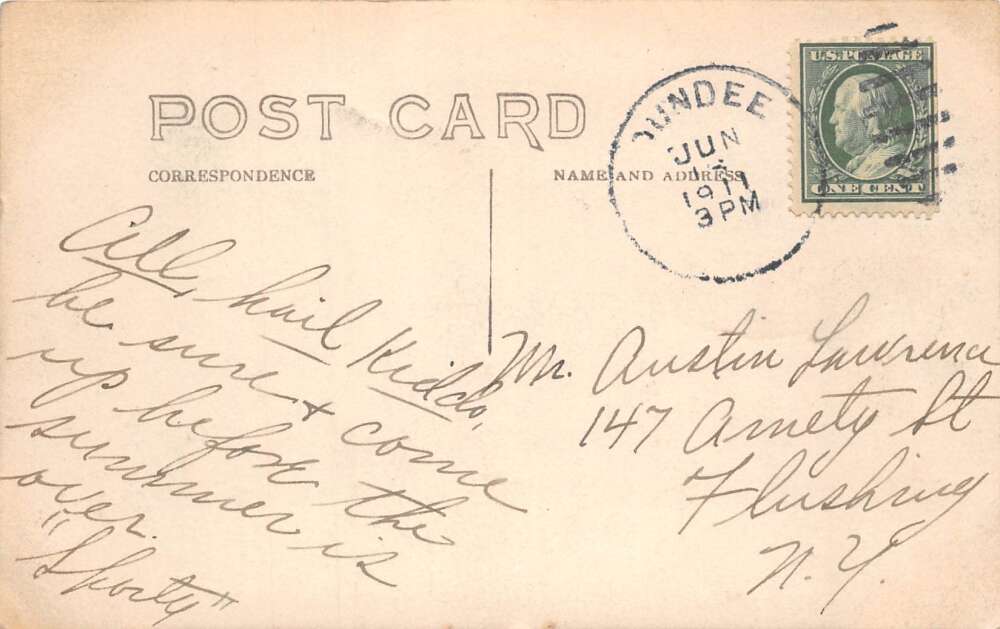 POST CARD
CORRESPONDENCE
NAME AND ADDRESS
DUNDEE
JUN
1911
3 PM
U.S. POSTAGE
ONE CENT
All hail Kiddo,
be sure & come
up before the
summer is
over.
"Shorty"
Mr. Austin Lawrence
147 Amety St
Flushing
N.Y.